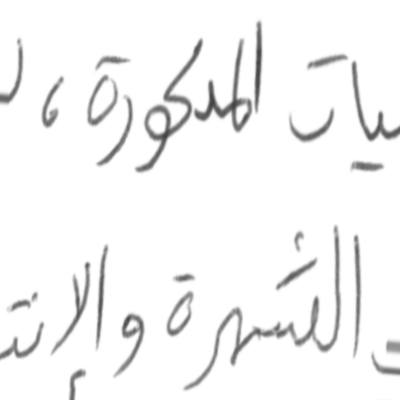 ـيات المذكورة ،
الشهرة والإنتـ